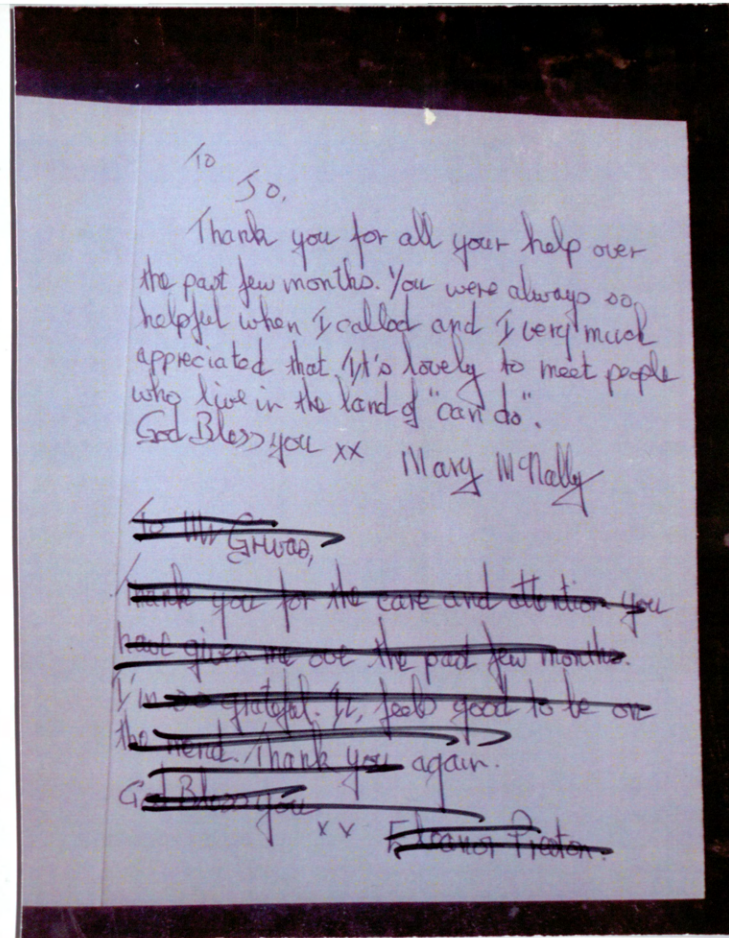 To
Jo,
Thank you for all your help over
the past few months. You were always so
helpful when I called and I very much
appreciated that. It's lovely to meet people
who live in the land of "can do".
God Bless you xx Mary McNally
To Mr
Thank you for the care and attention you
have given me over the past few months.
I'm so grateful. It, feels good to be on
the mend. Thank you again.
God Bless you
xx Eleanor Preston.